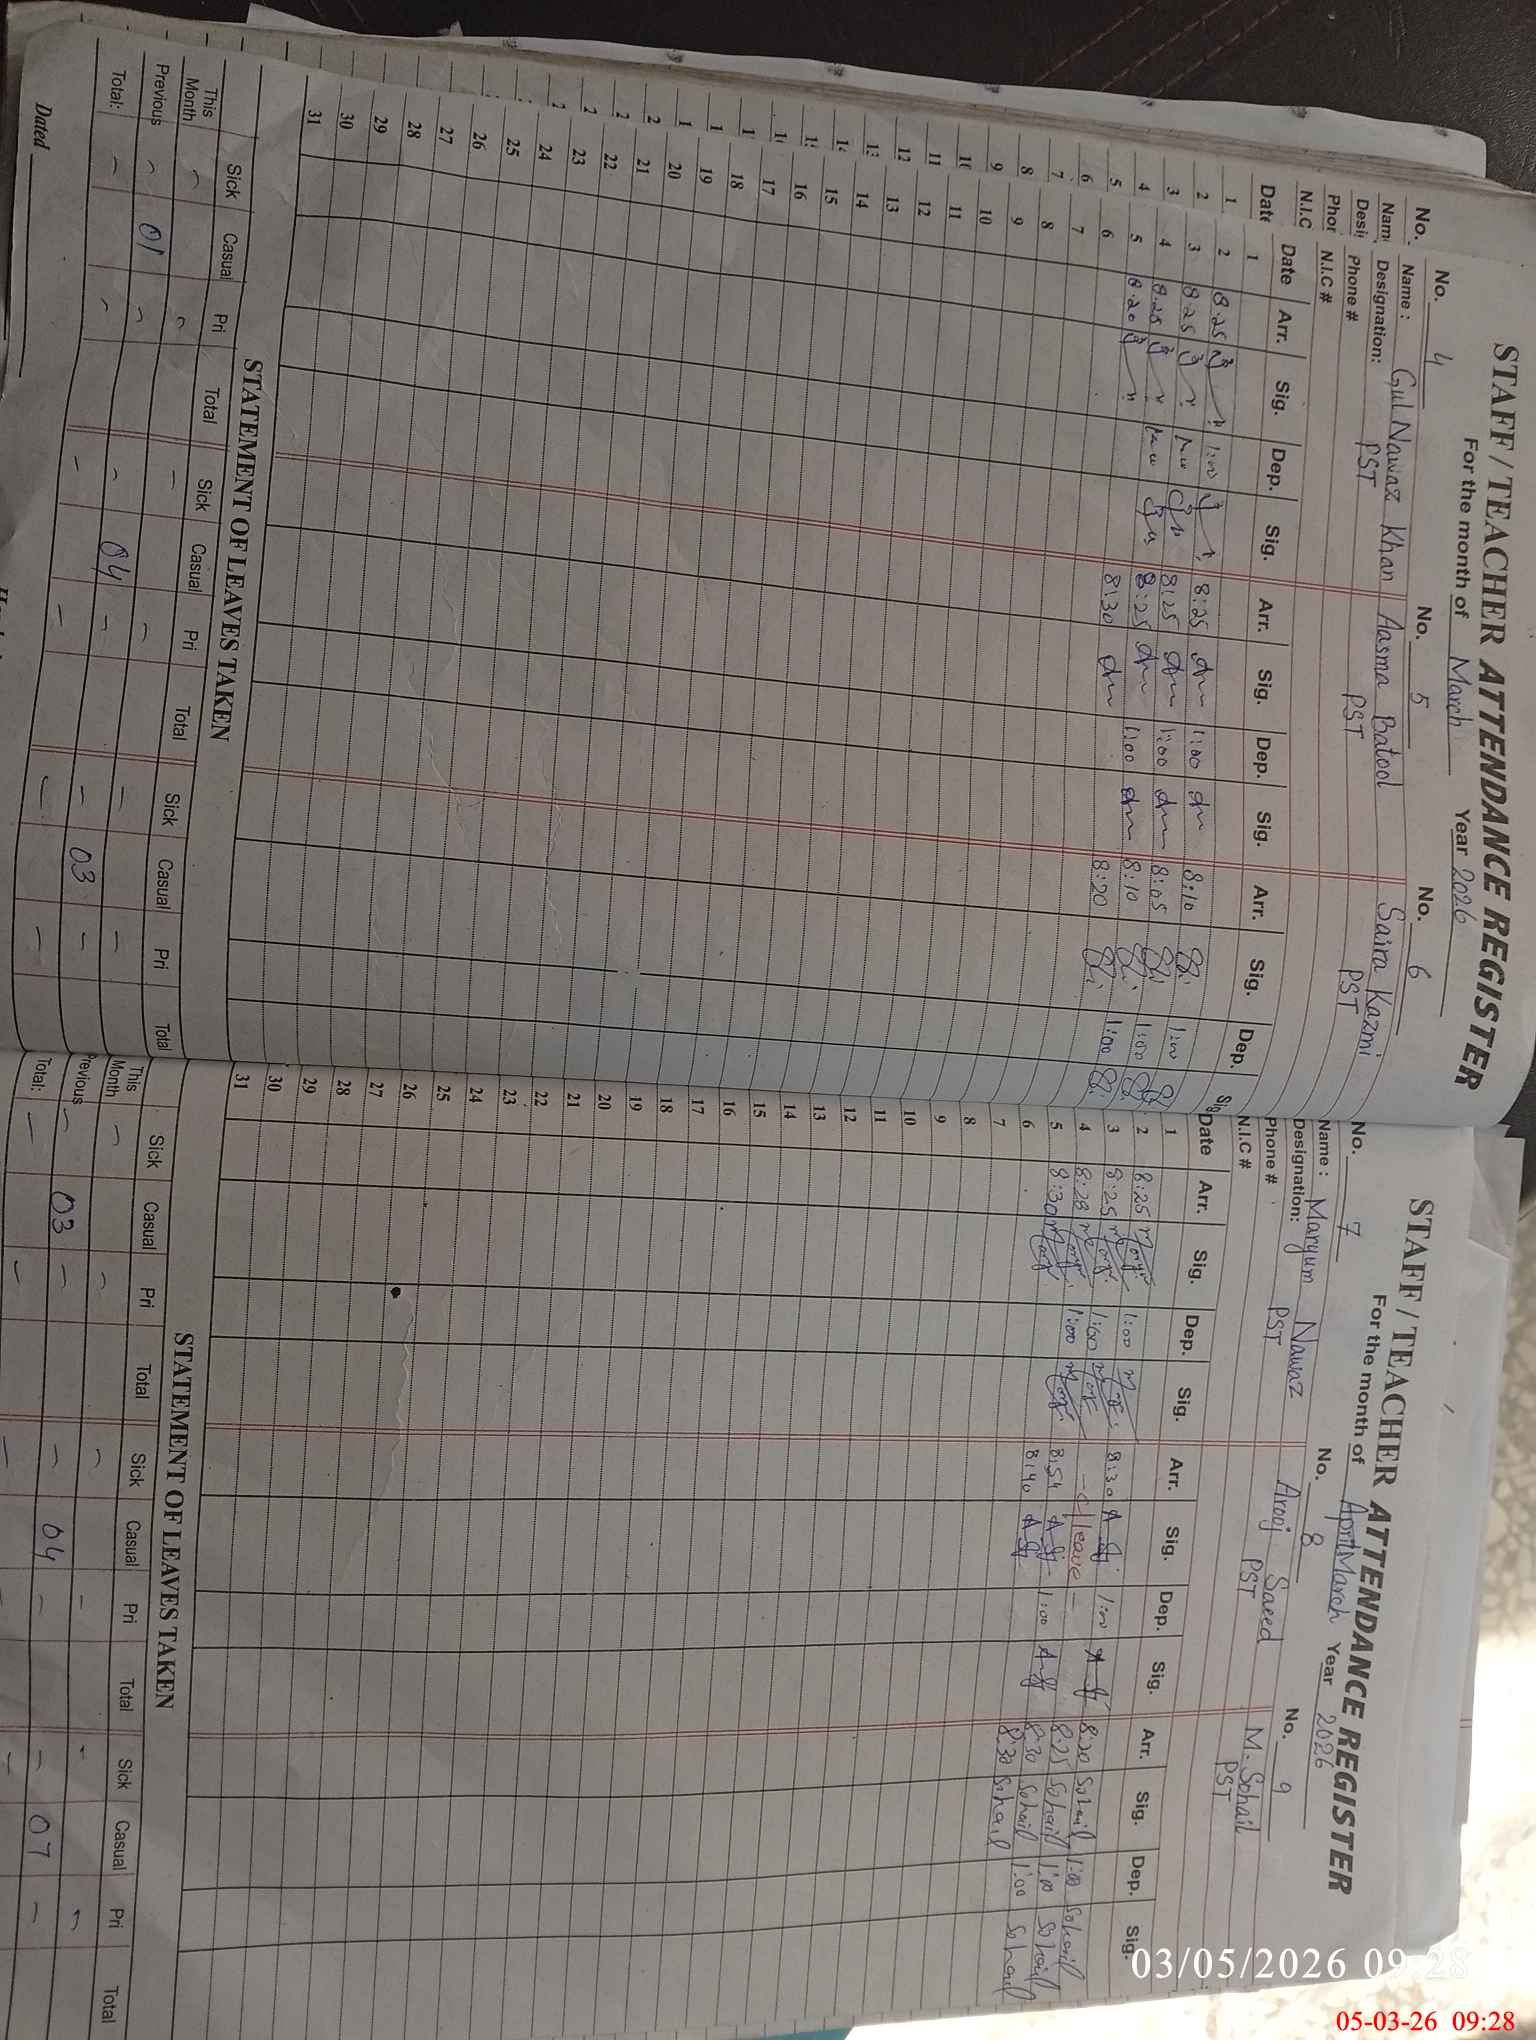 STAFF/TEACHER ATTENDANCE REGISTER
For the month of March Year 2026
No. 4 No. 5 No. 6
Name: Gul Nawaz Khan Aasma Batool Saira Kazmi
Designation: PST PST PST
Phone #
N.I.C #
Date Arr. Sig. Dep. Sig. Arr. Sig. Dep. Sig. Arr. Sig. Dep. Sig
1
2 8.25 1:00 8:25 1:00 8:10 1:00
3 8.25 8:25 1:00 8:05 1:00
4 8.25 8:25 1:00 8:10 1:00
5 8.20 8:30 8:20
6
7
8
9
10
11
12
13
14
15
16
17
18
19
20
21
22
23
24
25
26
27
28
29
30
31
STATEMENT OF LEAVES TAKEN
Sick Casual Pri Total Sick Casual Pri Total Sick Casual Pri Total
This Month
Previous 01 04 03
Total:
Dated
No.
Nam
Desi
Phor
N.I.C
Date
1
2
3
4
5
6
7
8
9
11
12
STAFF/TEACHER ATTENDANCE REGISTER
For the month of April March Year 2026
No. 7 No. 8 No. 9
Name: Maryum Nawaz Arooj Saeed M. Sohail
Designation: PST PST PST
Phone #
N.I.C #
Date Arr. Sig. Dep. Sig. Arr. Sig. Dep. Sig. Arr. Sig. Dep. Sig.
1
2 8:25 1:00 8:30 1:00 8:20 Sohail 1:00 Sohail
3 8:25 1:00 - C/leave - 8:25 Sohail 1:00 Sohail
4 8:28 1:00 8:54 1:00 8:30 Sohail 1:00 Sohail
5 8:30 8:40 8:30 Sohail
6
7
8
9
10
11
12
13
14
15
16
17
18
19
20
21
22
23
24
25
26
27
28
29
30
31
STATEMENT OF LEAVES TAKEN
Sick Casual Pri Total Sick Casual Pri Total Sick Casual Pri Total
This Month
Previous 03 04 07
Total:
03/05/2026 09:28
05-03-26 09:28